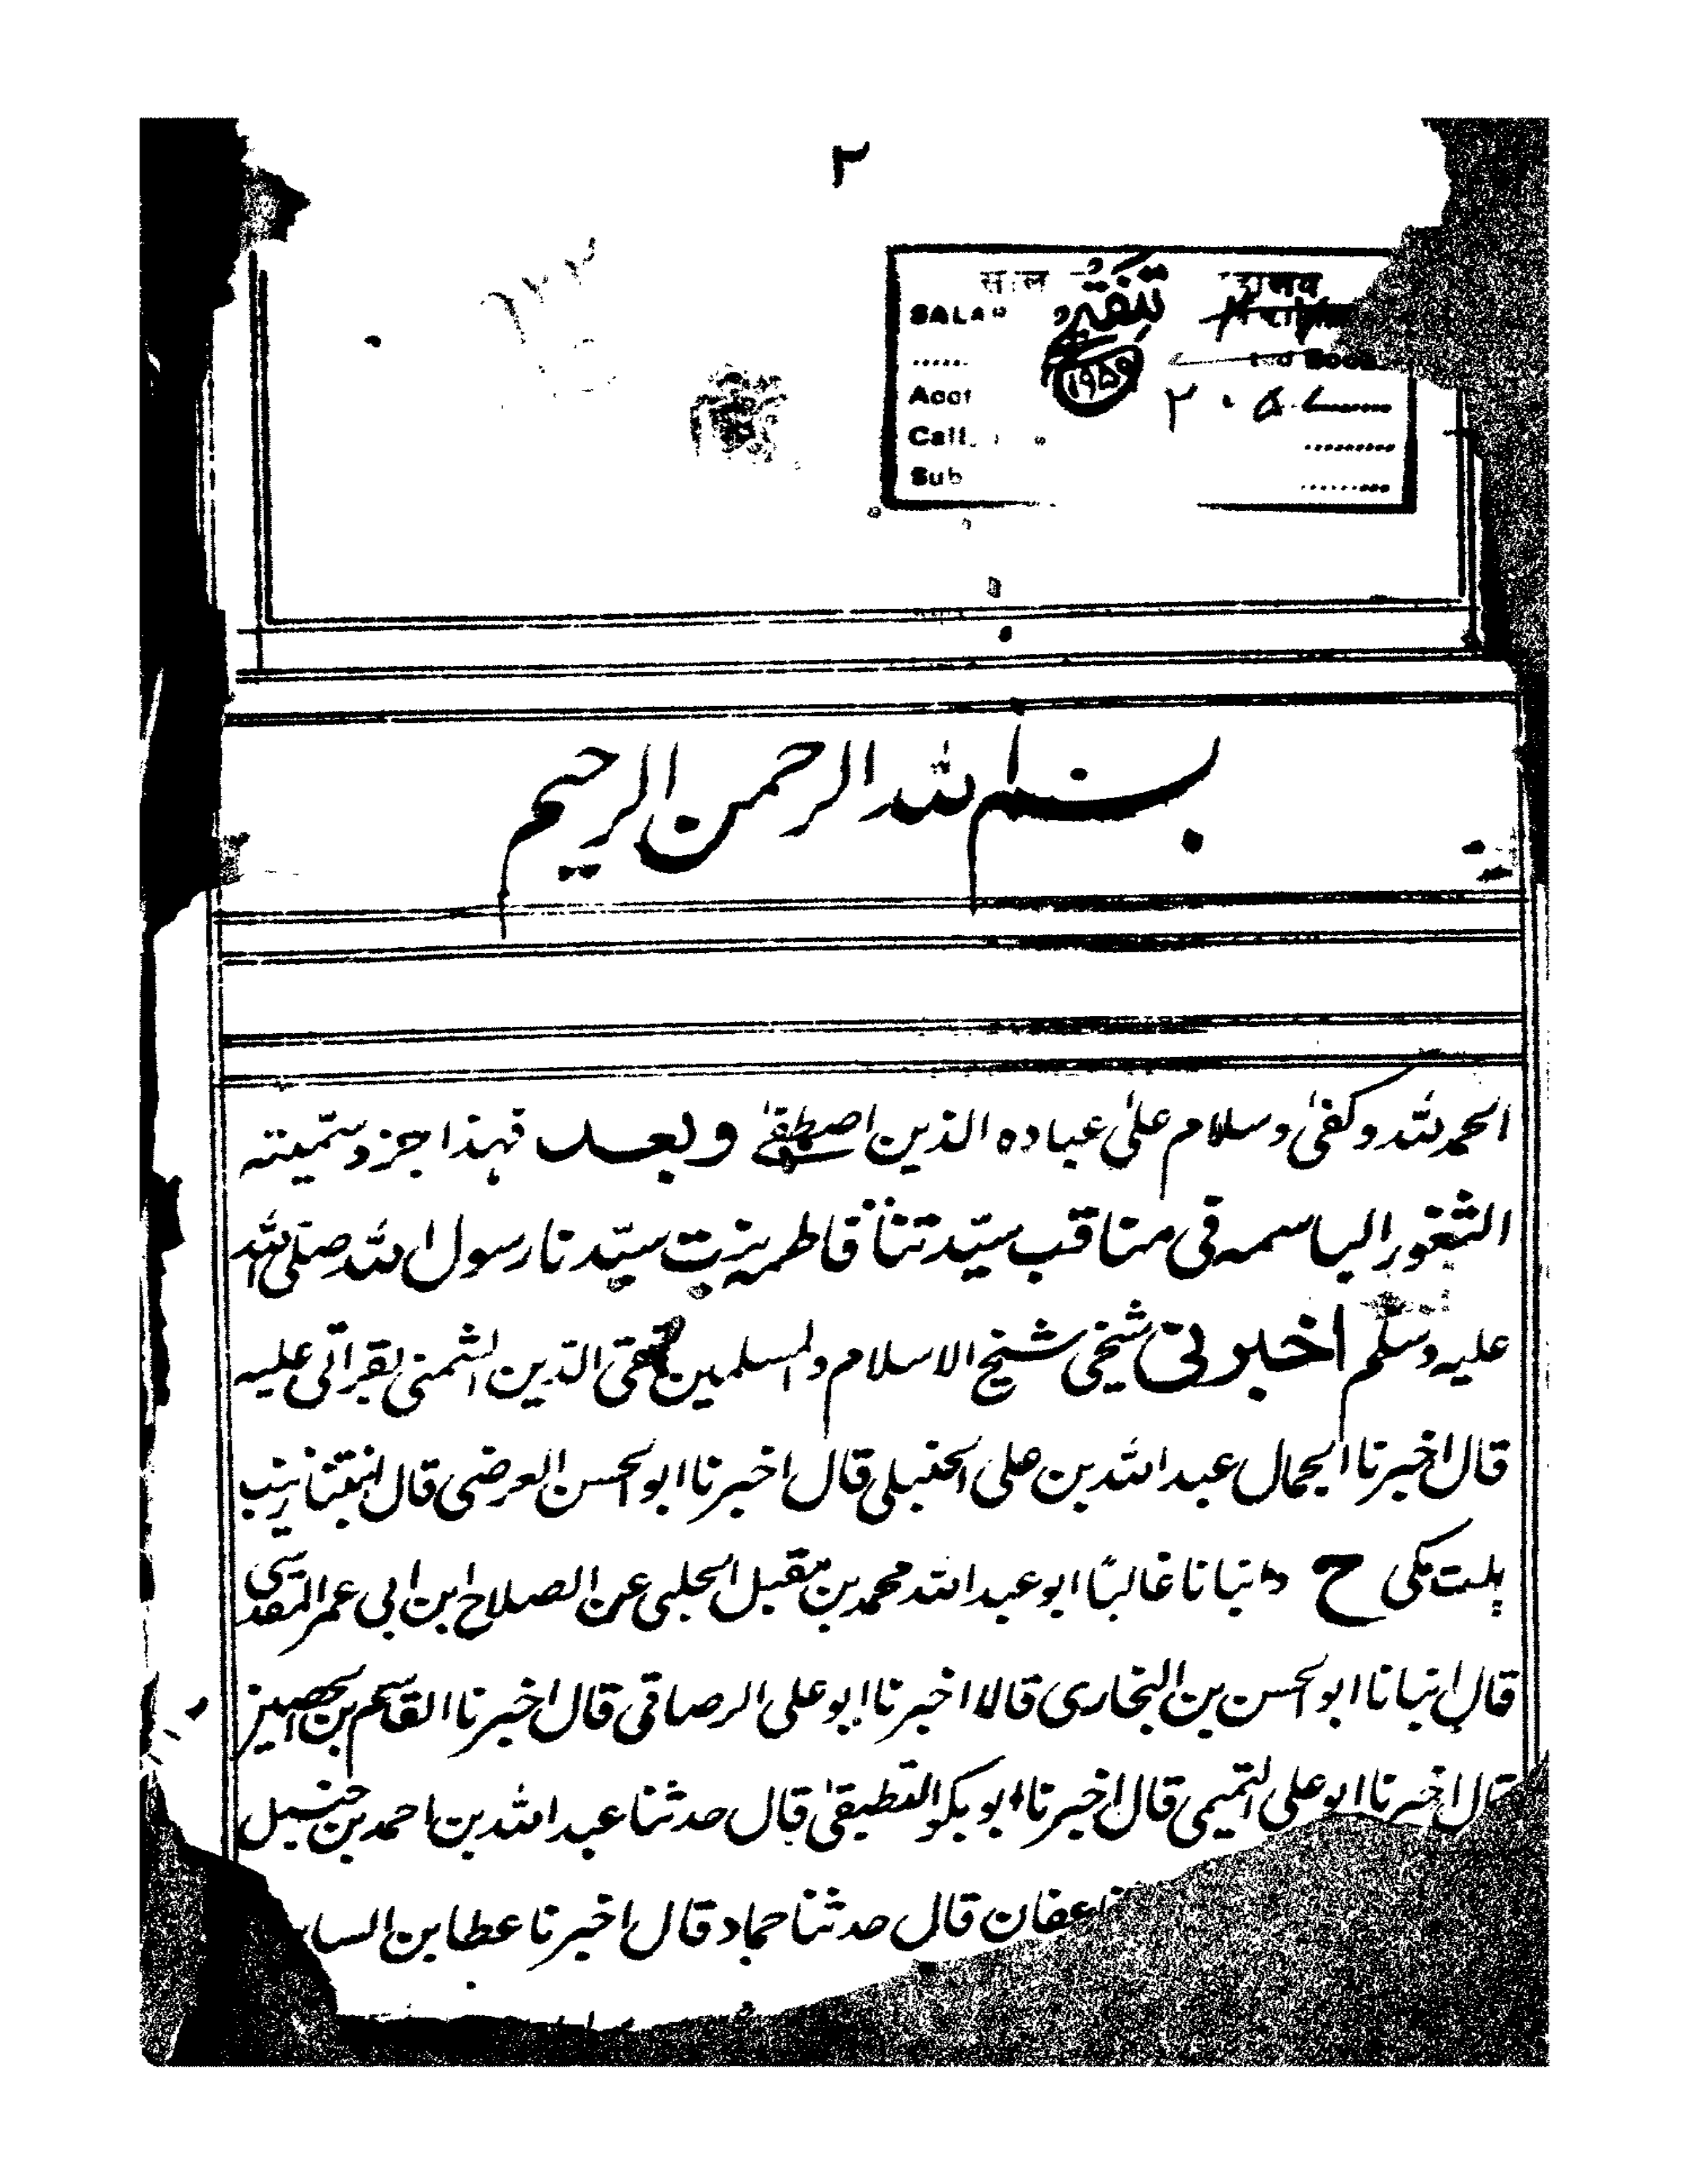 ٢
SALA
١٩٥٩
٢٠٥
Call
Sub
بسم الله الرحمن الرحيم
الحمد لله وكفى وسلام على عباده الذين اصطفى وبعد فهذا جزو سميته
الثغور الباسمه فى مناقب سيّدتنا فاطمة بنت سيّدنا رسول الله صلى الله
عليه وسلم اخبرنى شيخى شيخ الاسلام والمسلمين تقى الدّين الشمنى بقراتى عليه
قال اخبرنا الجمال عبد الله بن على الحنبلى قال اخبرنا ابو الحسن العرضى قال انبئتنا زينب
بنت مكى ح وانبانا غالبًا ابو عبد الله محمد بن مقبل الحلبى عن الصلاح ابن ابى عمر المقدسى
قال انبانا ابو الحسن بن البخارى قالا اخبرنا ابو على الرصافى قال اخبرنا القاسم بن الحصين
قال اخبرنا ابو على التميمى قال اخبرنا ابو بكر القطيعى قال حدثنا عبد الله بن احمد بن حنبل
عفان قال حدثنا حماد قال اخبرنا عطا بن السا